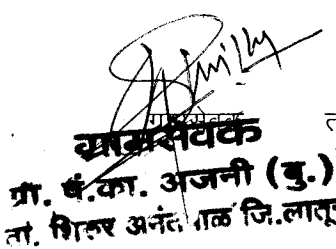 ग्रामसेवक
ग्रामसेवक
ग्रा. पं.का. अजनी (बु.)
तां. शिरुर अनंतपाळ जि.लातूर